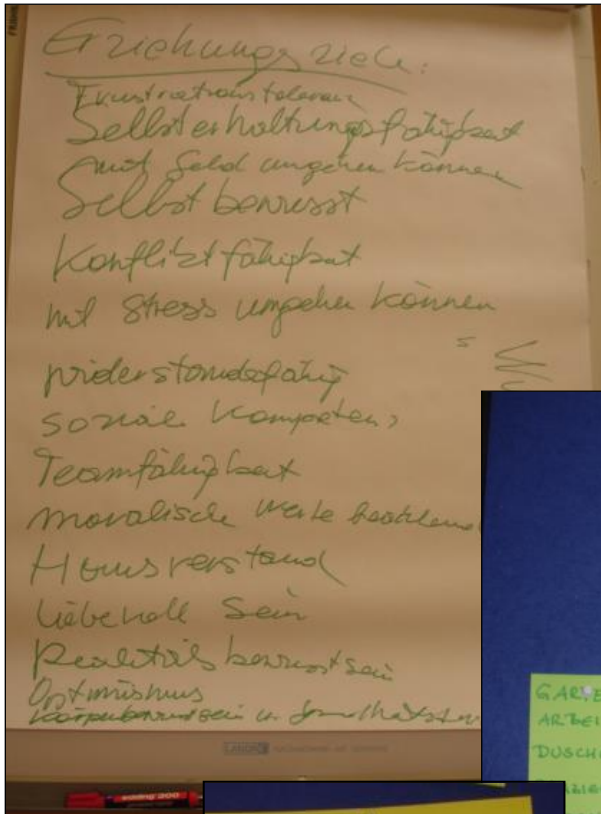 Erziehungsziele:
Frustrationstoleranz
Selbsterhaltungsfähigkeit
mit Geld umgehen können
Selbst bewusst
Konfliktfähigkeit
mit Stress umgehen können
widerstandsfähig
soziale Kompetenz
Teamfähigkeit
moralische Werte
Hausverstand
liebevoll sein
Realitätsbewusstsein
Optimismus
edding 200
ARBEI
DUSCH